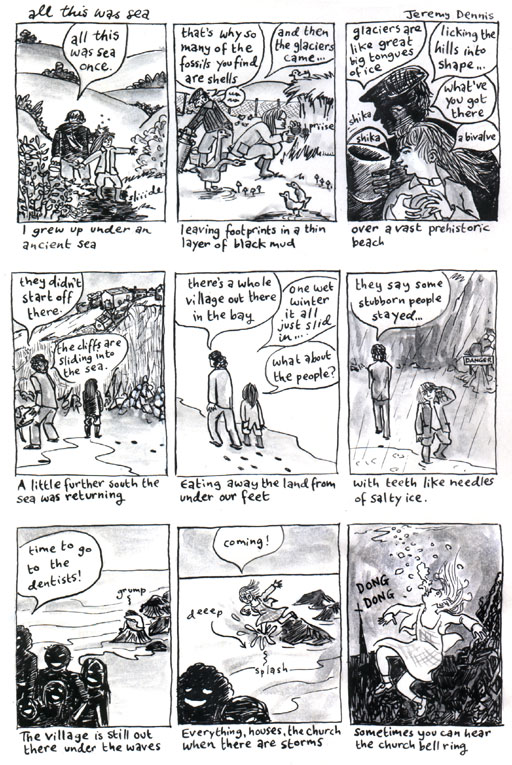 all this was sea
Jeremy Dennis
all this
was sea
once.
sliiide
I grew up under an
ancient sea
that's why so
many of the
fossils you find
are shells
and then
the glaciers
came...
mm
mm
mise
leaving footprints in a thin
layer of black mud
glaciers are
like great
big tongues
of ice
licking the
hills into
shape...
what've
you got
there
shika
shika
a bivalve
over a vast prehistoric
beach
they didn't
start off
there.
the cliffs are
sliding into
the sea.
A little further south the
sea was returning
there's a whole
village out there
in the bay
one wet
winter
it all
just slid
in...
what about
the people?
Eating away the land from
under our feet
they say some
stubborn people
stayed...
DANGER
with teeth like needles
of salty ice.
time to go
to the
dentists!
grump
The village is still out
there under the waves
coming!
deeep
splash
Everything, houses, the church
when there are storms
DONG
DONG
Sometimes you can hear
the church bell ring